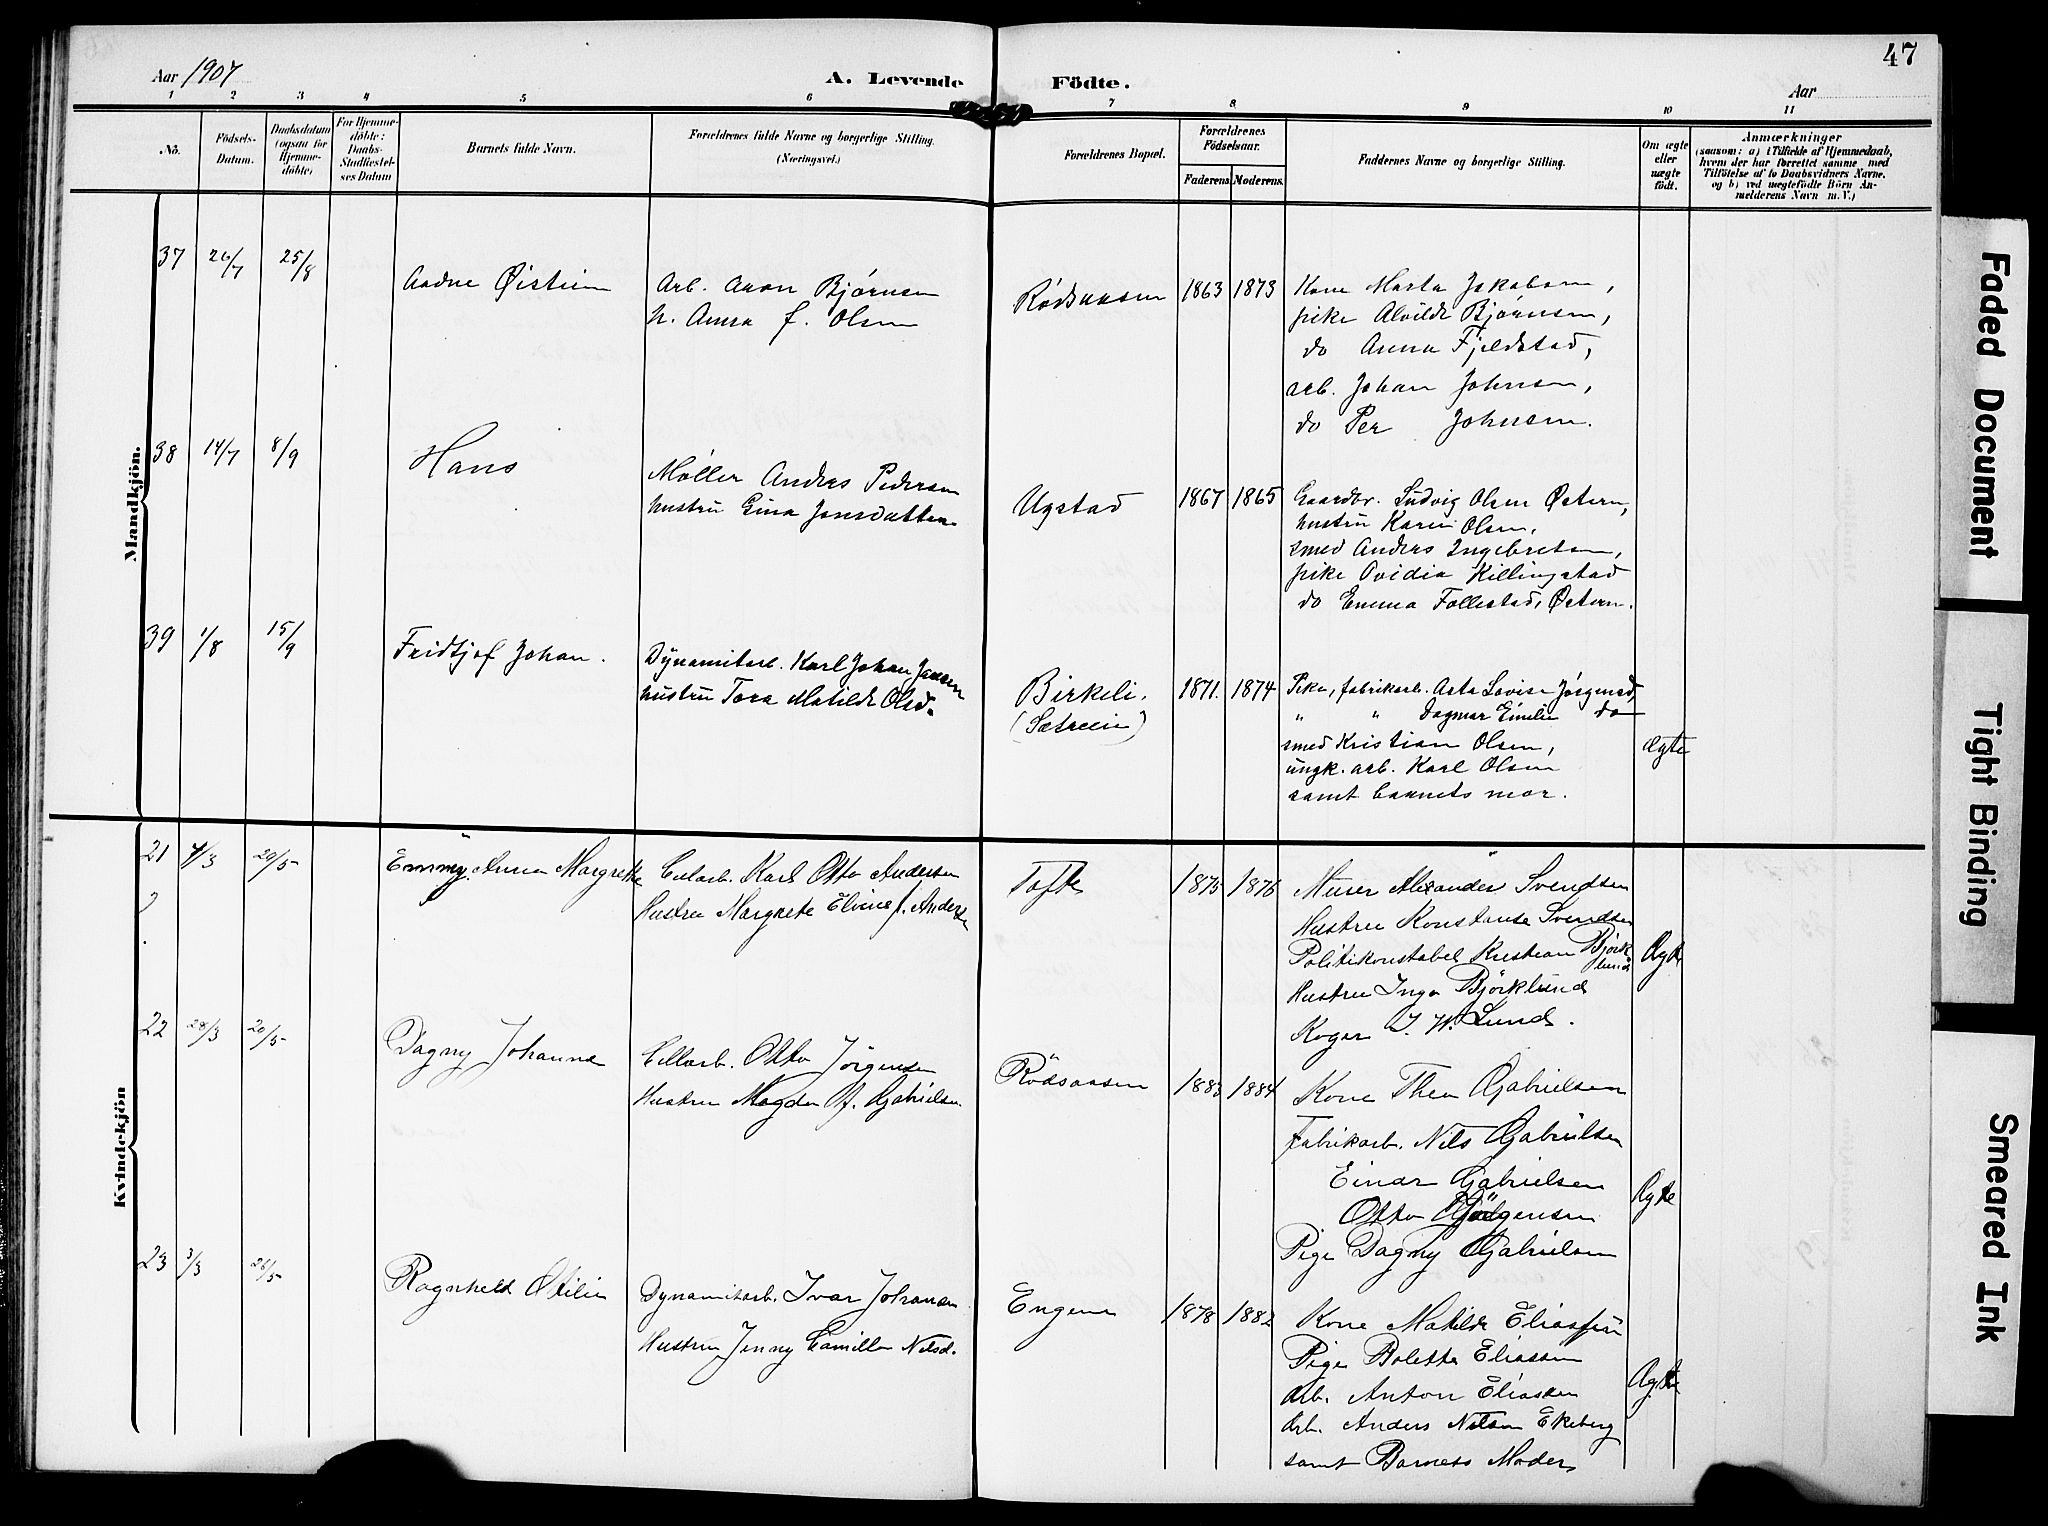 47
Aar 1907
A. Levende Födte.
Aar
1 2 3 4 5 6 7 8 9 10 11
No.
Födsels-
Datum.
Daabsdatum
(ogsaa for
Hjemme-
döbte)
For Hjemme-
döbte:
Daabs-
Stadfæstel-
ses Datum
Barnets fulde Navn.
Forældrenes fulde Navne og borgerlige Stilling.
(Næringsvei.)
Forældrenes Bopæl.
Forældrenes
Födselsaar.
Faderens Moderens.
Faddernes Navne og borgerlige Stilling.
Om ægte
eller
uægte
födt.
Anmærkninger
(saasom: a) i Tilfælde af Hjemmedaab,
hvem der har forrettet samme med
Tilföielse af to Daabsvidners Navne.
og b) ved uægtefödte Börn An-
melderens Navn m. V.)
Mandkjön.
37 26/7 25/8
Aadne Øistein
Arb. Aron Bjørnsen
h. Anna f. Olsen
Rødsaasen
1863 1873
Kone Marta Jakobsen,
pike Alvilde Bjørnsen,
do Anna Fjeldstad,
arb. Johan Johnsen,
do Per Johnsen.
38 14/7 8/9
Hans
Møller Anders Pedersen
hustru Gina Jonsdatter
Ugstad
1867 1865
Gaardbr. Ludvig Olsen Østern,
hustru Karen Olsen,
smed Anders Ingebretsen,
pike Ovidia Killingstad
do Emma Follestad, Østern.
39 1/8 15/9
Fridtjof Johan.
Dynamitarb. Karl Johan Jansen
hustru Tora Matilde Olsd.
Birkeli.
(Sætreeie)
1871. 1874
Pike, fabrikarb. Asta Lovise Jörgensd,
" " Dagmar Emilie do
smed Kristian Olsen,
ungk. arb. Karl Olsen
samt barnets mor.
ægte
Kvindekjön
21 4/3 20/5
Emmy Anna Margrethe
Cellarb. Karl Otto Andersen
Hustru Margrete Elvine f. Andersen
Tofte
1875 1876
Murer Alexander Svendsen
Hustru Konstanse Svendsen
Politikonstabel Kristian Björklund
Hustru Inga Björklund
Koger J. W. Lund.
Ægte
22 28/3 20/5
Dagny Johanne
Cellarb. Otto Jörgensen
Hustru Magda f. Gabrielsen
Rödsaasen
1883 1884
Kone Thea Gabrielsen
Fabrikarb. Nils Gabrielsen
Einar Gabrielsen
Otto Jörgensen
Pige Dagny Gabrielsen
Ægte
23 3/3 26/5
Ragnhild Otilie
Dynamitarb. Ivar Johansen
Hustru Jenny Camilla Nilsd.
Engene
1878 1882
Kone Matilde Eliassen
Pige Bolette Eliassen
Arb. Anton Eliassen
Arb. Anders Nilsen Ekeberg
samt Barnets Moder
Ægte
Faded Document
Tight Binding
Smeared Ink